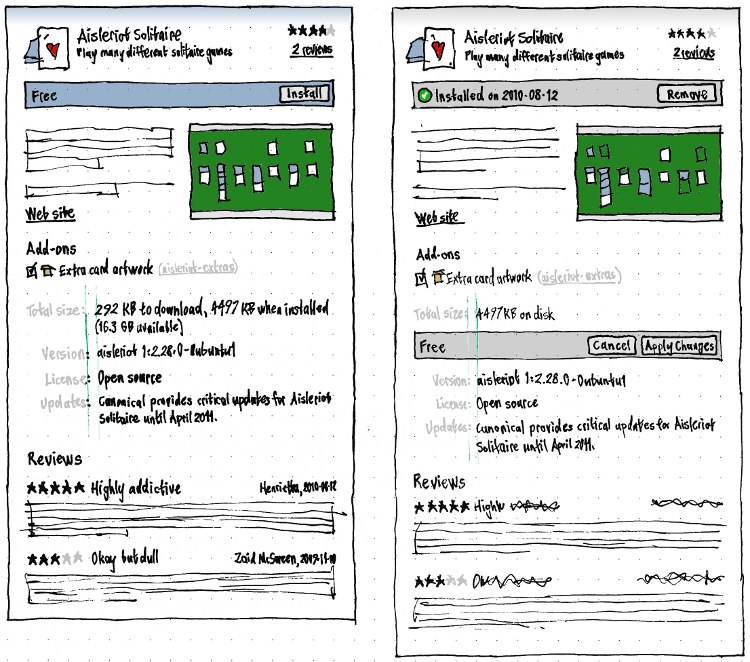 Aisleriot Solitaire
Play many different solitaire games
2 reviews
Free
Install
Web site
Add-ons
Extra card artwork (aisleriot-extras)
Total size: 292 KB to download, 4497 KB when installed
(16.3 GB available)
Version: aisleriot 1:2.28.0-0ubuntu1
License: Open source
Updates: Canonical provides critical updates for Aisleriot
Solitaire until April 2011.
Reviews
Highly addictive
Okay but dull
Aisleriot Solitaire
Play many different solitaire games
2 reviews
Installed on 2010-08-12
Remove
Web site
Add-ons
Extra card artwork (aisleriot-extras)
Total size: 4497 KB on disk
Free
Cancel
Apply Changes
Version: aisleriot 1:2.28.0-0ubuntu1
License: Open source
Updates: Canonical provides critical updates for Aisleriot
Solitaire until April 2011.
Reviews
Highly